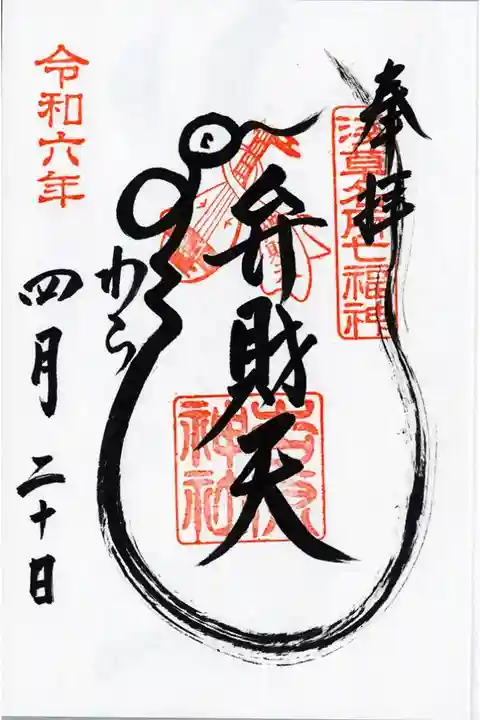 奉拝
浅草名所七福神
弁財天
吉原神社
わら
令和六年
四月二十日